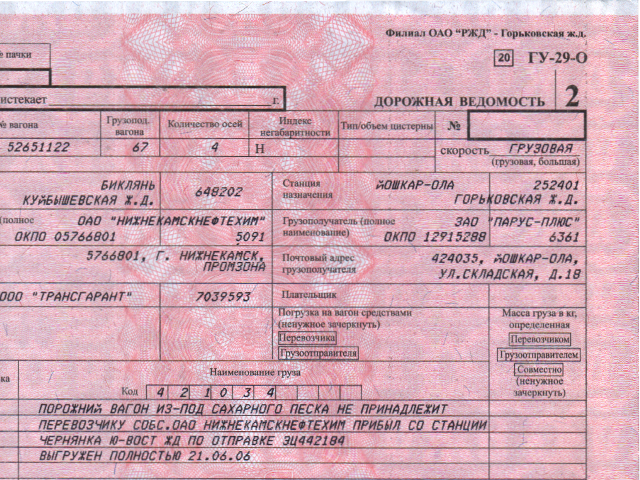 Филиал ОАО "РЖД" - Горьковская ж.д.
№ пачки
20 ГУ-29-О
истекает г.
ДОРОЖНАЯ ВЕДОМОСТЬ 2
№ вагона
Грузопод. вагона
Количество осей
Индекс негабаритности
Тип/объем цистерны
№
52651122 67 4 Н
скорость ГРУЗОВАЯ
(грузовая, большая)
БИКЛЯНЬ
КУЙБЫШЕВСКАЯ Ж.Д.
648202
Станция назначения
ЙОШКАР-ОЛА 252401
ГОРЬКОВСКАЯ Ж.Д.
(полное
ОАО "НИЖНЕКАМСКНЕФТЕХИМ"
ОКПО 05766801 5091
Грузополучатель (полное
наименование)
ЗАО "ПАРУС-ПЛЮС"
ОКПО 12915288 6361
5766801, Г. НИЖНЕКАМСК,
ПРОМЗОНА
Почтовый адрес
грузополучателя
424035, ЙОШКАР-ОЛА,
УЛ.СКЛАДСКАЯ, Д.18
ООО "ТРАНСГАРАНТ" 7039593
Плательщик
Погрузка на вагон средствами
(ненужное зачеркнуть)
Перевозчика
Грузоотправителя
Масса груза в кг,
определенная
Перевозчиком
Грузоотправителем
Совместно
(ненужное
зачеркнуть)
Наименование груза
Код 4 2 1 0 3 4
ПОРОЖНИЙ ВАГОН ИЗ-ПОД САХАРНОГО ПЕСКА НЕ ПРИНАДЛЕЖИТ
ПЕРЕВОЗЧИКУ СОБС.ОАО НИЖНЕКАМСКНЕФТЕХИМ ПРИБЫЛ СО СТАНЦИИ
ЧЕРНЯНКА Ю-ВОСТ ЖД ПО ОТПРАВКЕ ЭЦ442184
ВЫГРУЖЕН ПОЛНОСТЬЮ 21.06.06